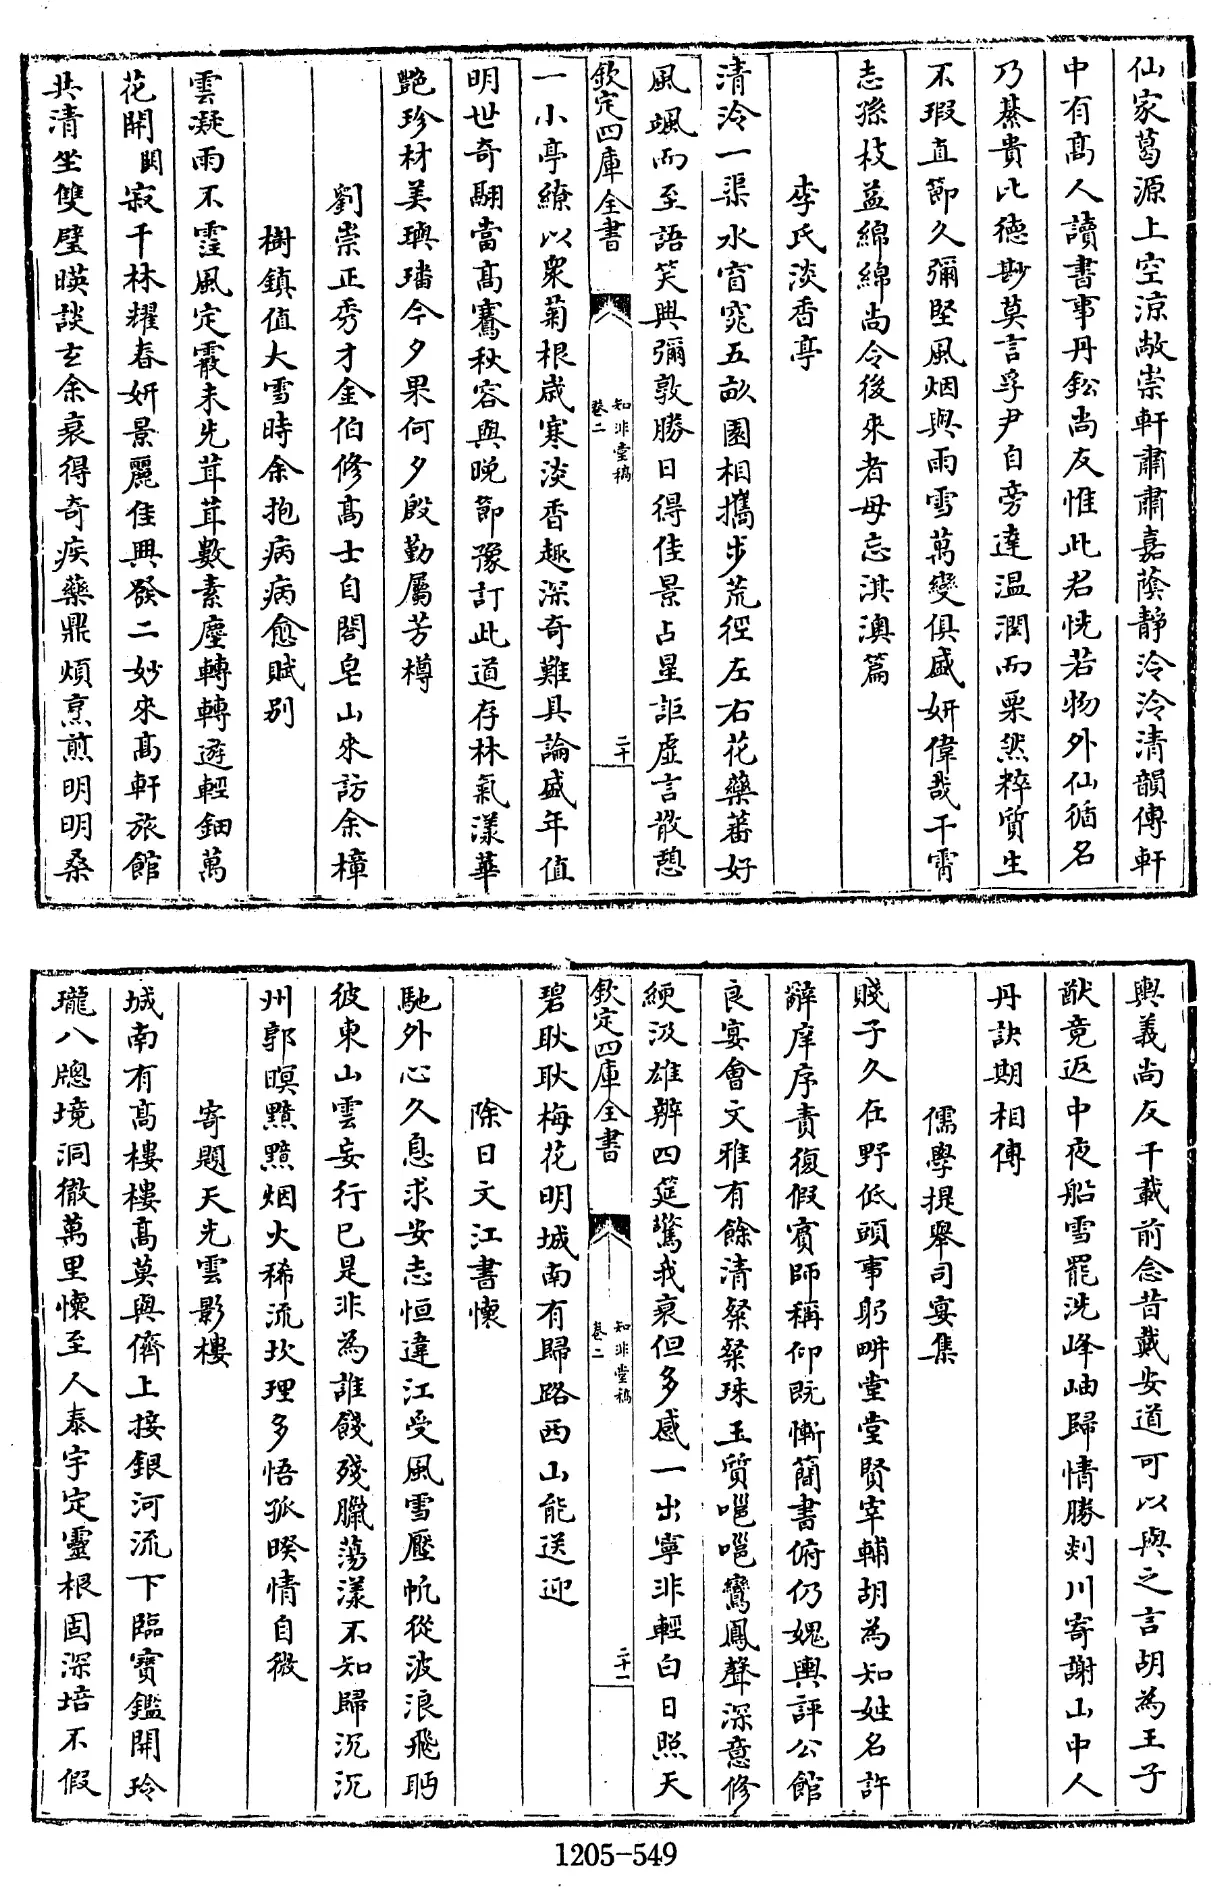 仙家葛源上空涼敞崇軒肅肅嘉蔭靜泠泠清韻傳軒
中有髙人讀書事丹鉛尚友惟此君恍若物外仙循名
乃綦貴比德尠莫言孚尹自旁達温潤而栗然粹質生
不瑕直節久彌堅風烟與雨雪萬變俱盛妍偉哉干霄
志孫枝益綿綿尚令後來者毋忘淇澳篇
李氏淡香亭
清泠一渠水窅窕五畝園相攜步荒徑左右花藥蕃好
風颯而至語笑興彌敦勝日得佳景占星詎虚言散憩
欽定四庫全書
知非堂稿
卷二
二十
一小亭繚以衆菊根歳寒淡香趣深奇難具論盛年值
明世奇翮當髙騫秋容與晩節豫訂此道存林氣漾華
艶珍材美璵璠今夕果何夕殷勤屬芳樽
劉崇正秀才金伯修髙士自閤皂山來訪余樟
樹鎮值大雪時余抱病病愈賦别
雲凝雨不霔風定霰未先茸茸數素塵轉轉遊輕鈿萬
花開閴寂千林耀春妍景麗佳興發二妙來髙軒旅館
共清坐雙璧暎談玄余衰得奇疾藥鼎煩烹煎明明桑
輿義尚友千載前念昔戴安道可以與之言胡為王子
猷竟返中夜船雪罷洗峰岫歸情勝剡川寄謝山中人
丹訣期相傳
儒學提舉司宴集
賤子久在野低頭事躬畊堂堂賢宰輔胡為知姓名許
辭庠序責復假賓師稱仰既慚簡書俯仍媿輿評公館
良宴會文雅有餘清粲粲珠玉質嗈嗈鸞鳳聲深意修
綆汲雄辨四筵驚我衰但多感一出寧非輕白日照天
欽定四庫全書
知非堂稿
卷二
二十一
碧耿耿梅花明城南有歸路西山能送迎
除日文江書懷
馳外心久息求安志恒違江受風雪壓帆從波浪飛眄
彼東山雲妄行已是非為誰餞殘臘蕩漾不知歸沉沉
州郭暝黯黯烟火稀流坎理多悟孤暌情自微
寄題天光雲影樓
城南有髙樓樓髙莫與儕上接銀河流下臨寳鑑開玲
瓏八牕境洞徹萬里懷至人泰宇定靈根固深培不假
1205-549